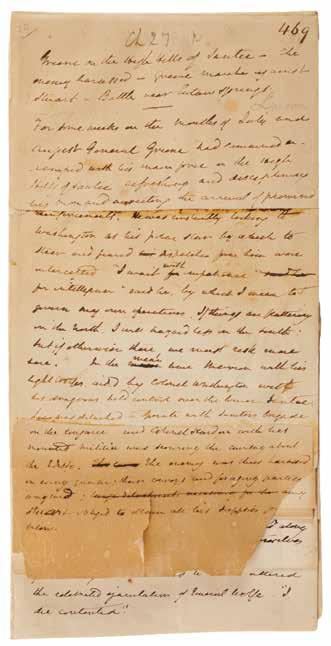 469
Ch 27
Greene on the high hills of Santee – The
enemy harassed – Greene marches against
Stuart – Battle near Eutaw Springs.
For some weeks in the months of July and
August General Greene had remained en-
camped with his main force on the high
hills of Santee refreshing and disciplining
his men and awaiting the arrival of promised
reinforcements. He was constantly looking to
Washington as his polar star by which to
steer and feared dispatches from him were
intercepted "I wait with impatience
for intelligence" said he, by which I mean to
govern my own operations. If things are flattering
in the North I will hazard less in the South;
but if otherwise there, we must risk more
here." In the mean time Marion with his
light troops, aided by Colonel Washington with
his dragoons held control over the lower Santee
was detached to operate with Sumters brigade
on the congaree and Colonel Hardin with his
mounted militia was scouring the country about
the Edisto. The enemy was thus harassed
in every quarter; their convoys and foraging parties
and
Stewart obliged to obtain all his supplies from
below.
along
uttered
the celebrated ejaculation of General Wolfe "I
die contented".